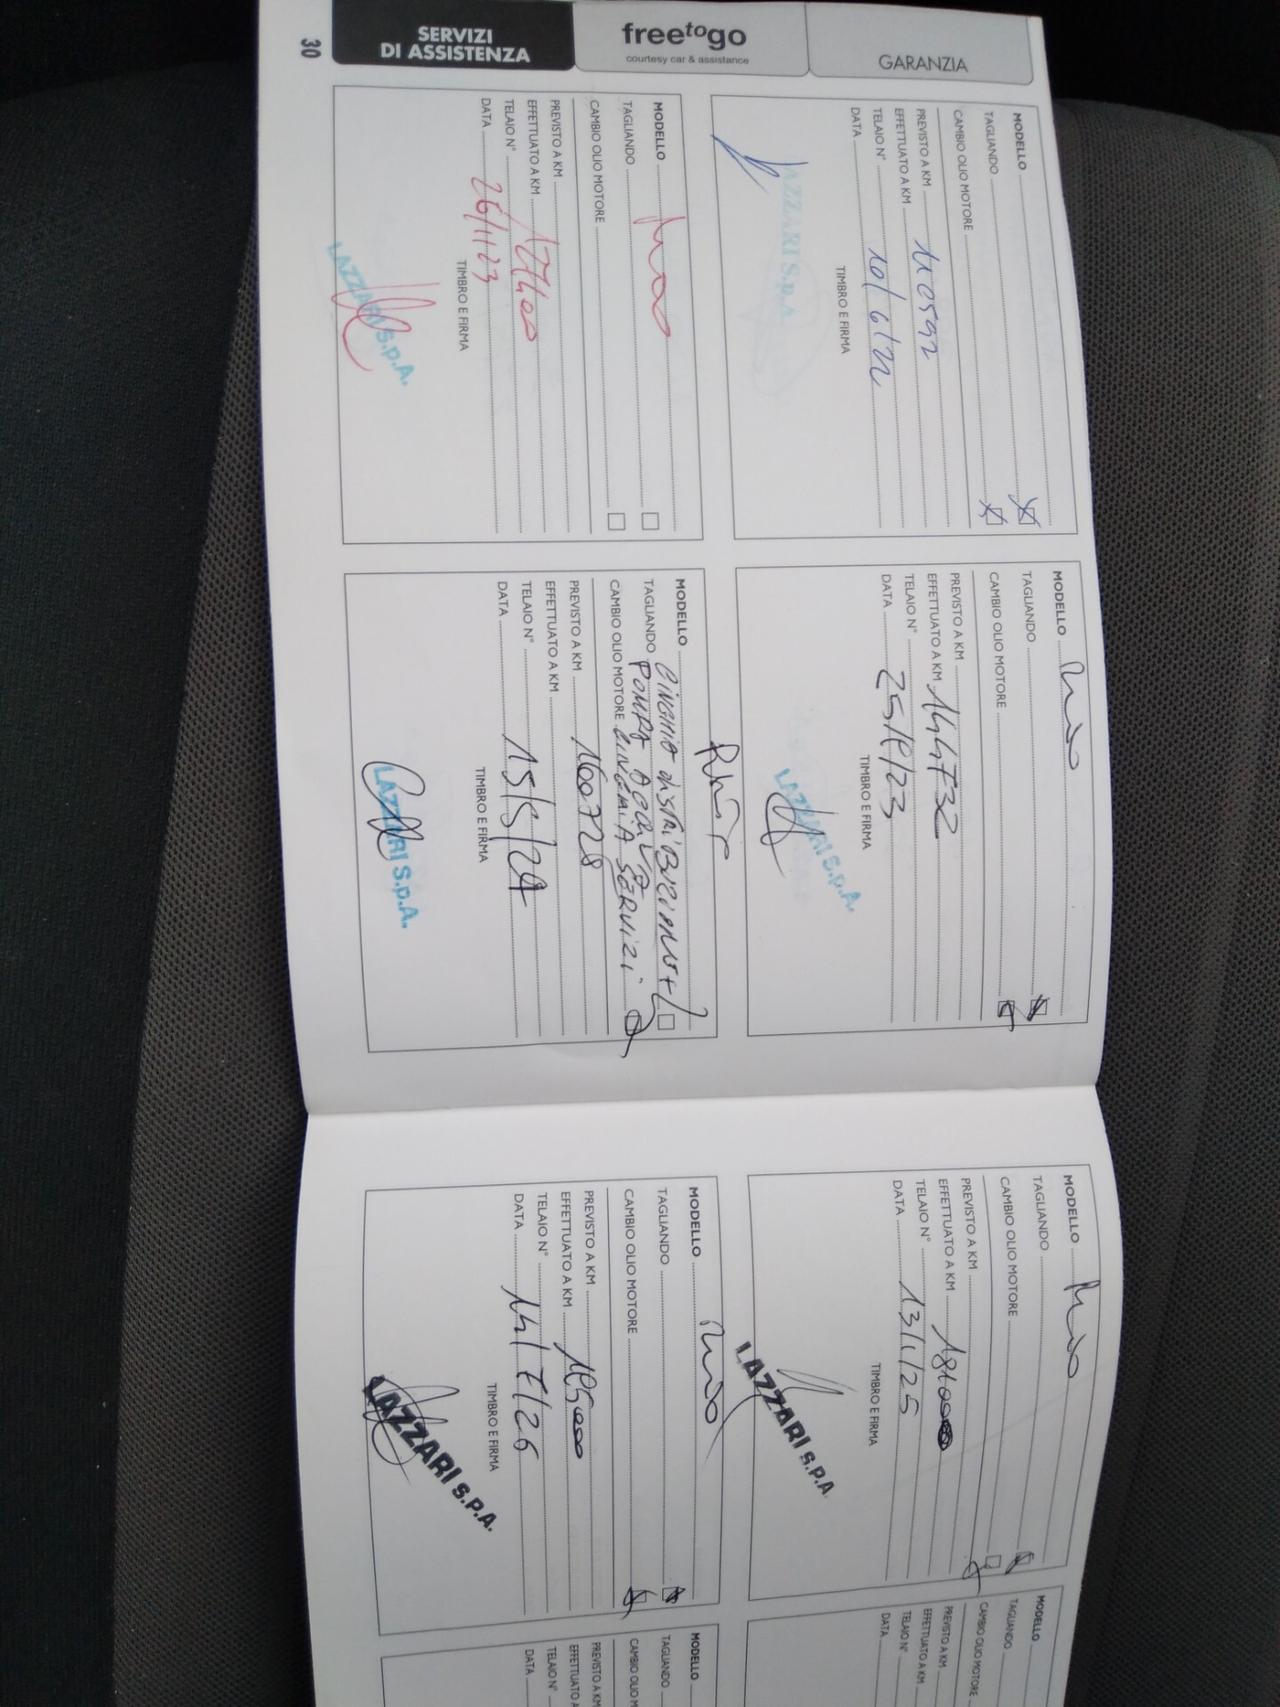 SERVIZI
DI ASSISTENZA
freetogo
courtesy car & assistance
GARANZIA
30
MODELLO
TAGLIANDO
CAMBIO OLIO MOTORE
PREVISTO A KM
EFFETTUATO A KM 110592
TELAIO N°
DATA 10/6/22
TIMBRO E FIRMA
LAZZARI S.p.A.
MODELLO
TAGLIANDO
CAMBIO OLIO MOTORE
PREVISTO A KM
EFFETTUATO A KM 127400
TELAIO N°
DATA 26/1/23
TIMBRO E FIRMA
LAZZARI S.p.A.
MODELLO
TAGLIANDO
CAMBIO OLIO MOTORE
PREVISTO A KM
EFFETTUATO A KM 144732
TELAIO N°
DATA
TIMBRO E FIRMA
LAZZARI S.p.A.
MODELLO CINGHIA DISTRIBUZIONE +
TAGLIANDO POMPA ACQUA
CAMBIO OLIO MOTORE CINGHIA SERVIZI
PREVISTO A KM 160728
EFFETTUATO A KM
TELAIO N°
DATA 15/5/24
TIMBRO E FIRMA
LAZZARI S.p.A.
MODELLO
TAGLIANDO
CAMBIO OLIO MOTORE
PREVISTO A KM
EFFETTUATO A KM 181000
TELAIO N°
DATA 13/1/25
TIMBRO E FIRMA
LAZZARI S.P.A.
MODELLO
TAGLIANDO
CAMBIO OLIO MOTORE
PREVISTO A KM
EFFETTUATO A KM
TELAIO N°
DATA
TIMBRO E FIRMA
LAZZARI S.P.A.
MODELLO
TAGLIANDO
CAMBIO OLIO MOTORE
PREVISTO A KM
EFFETTUATO A KM
TELAIO N°
DATA
MODELLO
TAGLIANDO
CAMBIO OLIO M
PREVISTO A KM
EFFETTUATO A
TELAIO N°
DATA